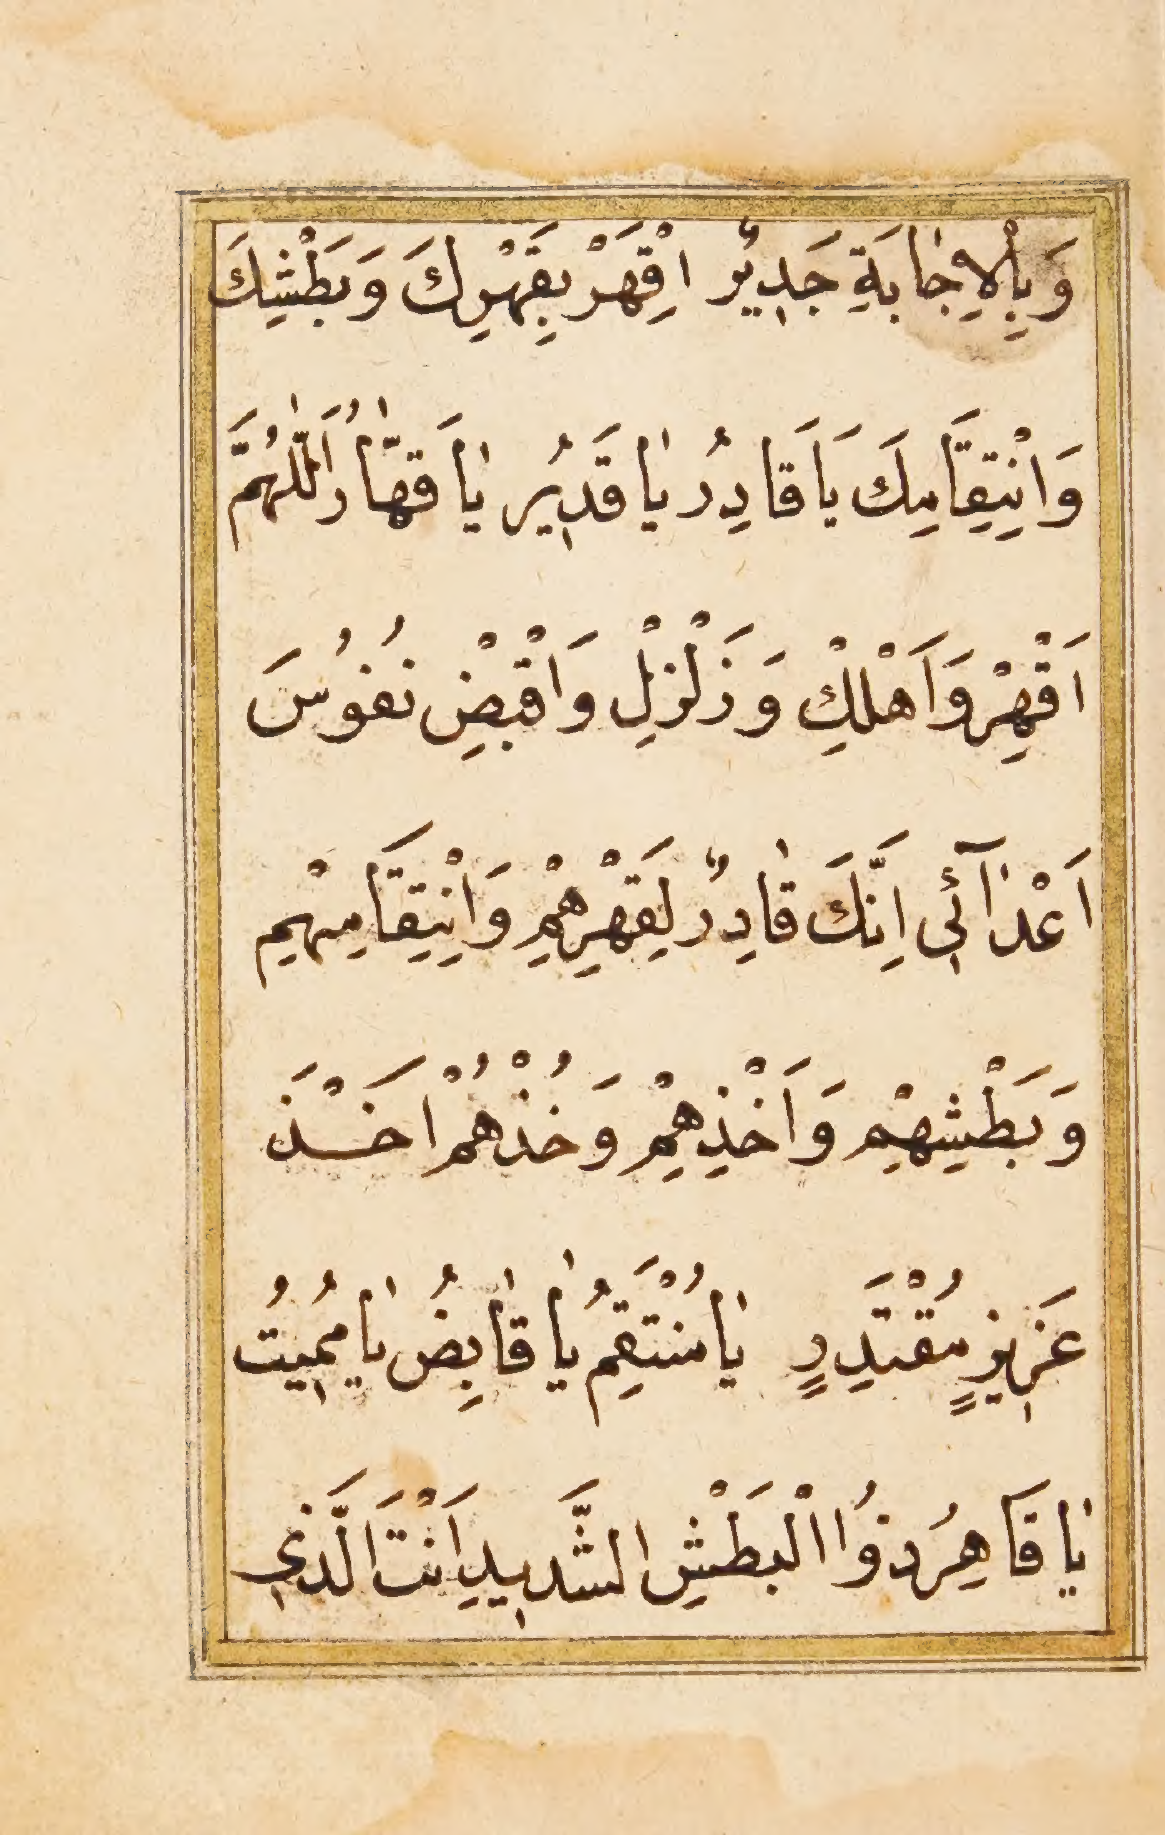 وَبِالْاِجٰابَةِ جَدٖيرٌ اقْهَرْ بِقَهْرِكَ وَبَطْشِكَ
وَانْتِقَامِكَ يَاقَادِرُ يٰاقَدٖيرُ يٰاقَهّٰارُ اَللّٰهُمَّ
اَقْهِرْ وَاَهْلِكْ وَزَلْزِلْ وَاقْبِضْ نُفُوسَ
اَعْدٰٓائٖى اِنَّكَ قٰادِرٌ لِقَهْرِهِمْ وَانْتِقَامِهِمْ
وَبَطْشِهِمْ وَاَخْذِهِمْ وَخُذْهُمْ اَخْذَ
عَزٖيزٍ مُقْتَدِرٍ يٰامُنْتَقِمُ يٰاقٰابِضُ يٰامُمٖيتُ
يٰاقَاهِرُ ذُواالْبَطْشِ الشَّدٖيدِ اَنْتَ الَّذٖي